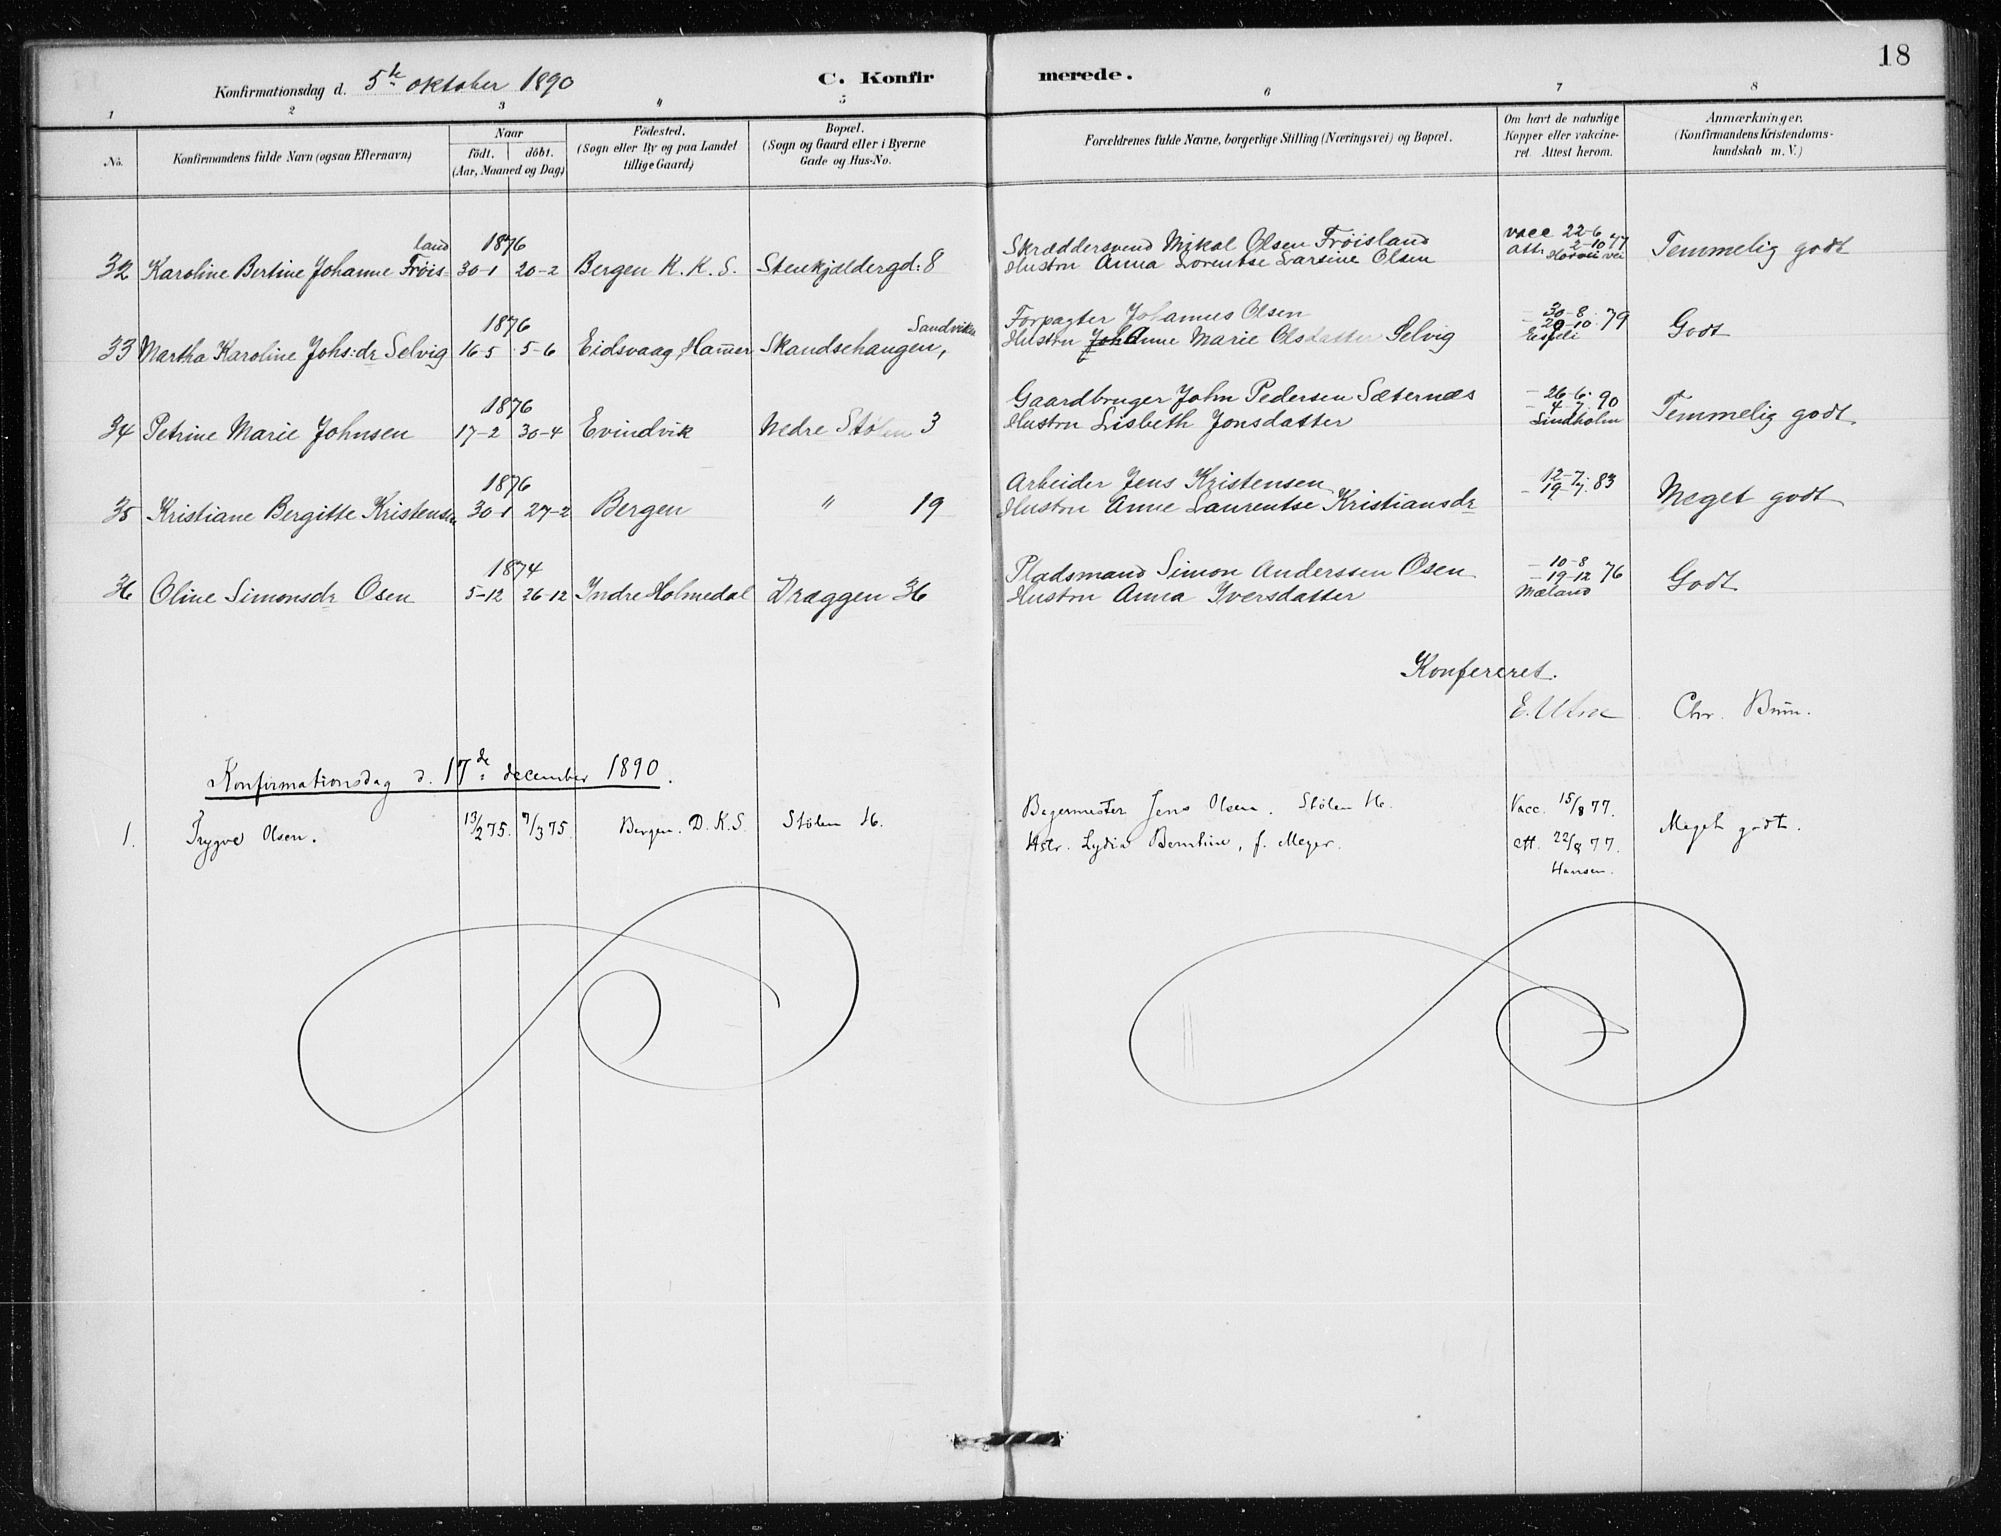 18
Konfirmationsdag d. 5te oktober 1890 C. Konfirmerede.
1 2 3 " 5 6 7 8
No. Konfirmandens fulde Navn (ogsaa Efternavn) Naar födt. döbt. (Aar, Maaned og Dag) Födested. (Sogn eller By og paa Landet tillige Gaard) Bopæl. (Sogn og Gaard eller i Byerne Gade og Hus-No. Forældrenes fulde Navne, borgerlige Stilling (Næringsvei) og Bopæl. Om havt de naturlige Kopper eller vakcineret Attest herom. Anmærkninger. (Konfirmandens Kristendomskundskab m. V.)
land 1876 Skræddersvend Mikal Olsen Frøisland vacc 22-6
32 Karoline Bertine Johanne Frøis 30-1 20-2 Bergen K. K. S. Stenkjældergd: 8 Hustru Anna Lorentse Larsine Olsen att 2-10 77 Temmelig godt
1876 Sandviken Forpagter Johannes Olsen - 30-8
33 Martha Karoline Johs:dr Selvig 16-5 5-6 Eidsvaag, Hamer Skandsehaugen, Hustru Anne Marie Olsdatter Selvig - 20-10 79 Godt
1876 Gaardbruger John Pedersen Sæternæs - 26-6 90
34 Petrine Marie Johnsen 17-2 30-4 Evindvik Nedre Stølen 3 Hustru Lisbeth Jonsdatter - 4-7 Lindholm Temmelig godt
1876 Arbeider Jens Kristensen 12-7
35 Kristiane Bergitte Kristensen 30-1 27-2 Bergen " 19 Hustru Anne Laurentse Kristiansdr - 19-7 83 Meget godt
1874 Pladsmand Simon Anderssen Osen - 10-8
36 Oline Simonsdr Osen 5-12 26-12 Yndre Holmedal Dræggen 36 Hustru Anna Iversdatter - 19-12 76 Mæland Godt
Konfereret.
Chr. Bruun.
Konfirmationsdag d. 17de december 1890.
1. Trygve Olsen. 13/2 75. 7/3 75. Bergen. D.K.S. Stølen 16. Bagermester Jens Olsen. Stølen 16. Vacc. 15/8 77. Meget godt.
Hstr. Lydia Berntine, f. Meyer. att. 22/8 77.
Hansen.